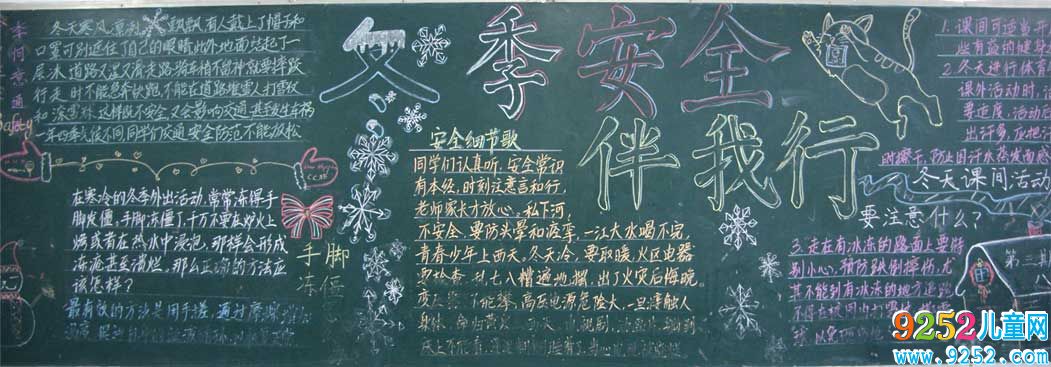 冬季安全
伴我行
季
何
意
通
Safety
冬天寒风凛冽
飘飘有人戴上了帽子和
口罩可别遮住了自己的眼睛此外地面站起了一
层冰 道路又湿又滑走路骑车稍不留神就要摔跤
行走时不能急奔快跑 不能在道路堆雪人打雪仗
和 这样既不安全 又会影响交通 甚至发生车祸
一年四季气候不同同学们交通安全防范不能放松
在寒冷的冬季外出活动,常常冻得手
脚发僵,手脚冻僵了,千万不要在炉火上
烤或者在热水中浸泡,那样会形成
冻疮甚至溃烂。那么正确的方法应
该怎样?
最有效的方法是用手搓,通过摩擦
手脚
冻僵
安全细节歌
同学们认真听,安全常识
有本经,时刻注意言和行,
老师家长才放心。私下河,
不安全,要防头晕和
一江大水喝不完,
青春少年上西天。冬天冷,要取暖,火区电器
要检查,乱七八糟遍地摊,出了火灾后悔晚。
高压电源危险大,一旦
触人
1.课间可适当开
些有益的健身
2.冬天进行体育
课外活动时,注
要适度,活动后
出汗多,应把汗
时擦干,防止因汗水蒸发而感
冬天课间活动
要注意什么?
3.走在有冰冻的路面上要特
别小心,预防跌倒摔伤,尤
其不能到有冰冻的地方追跑
第三
八
9252儿童网
www.9252.com